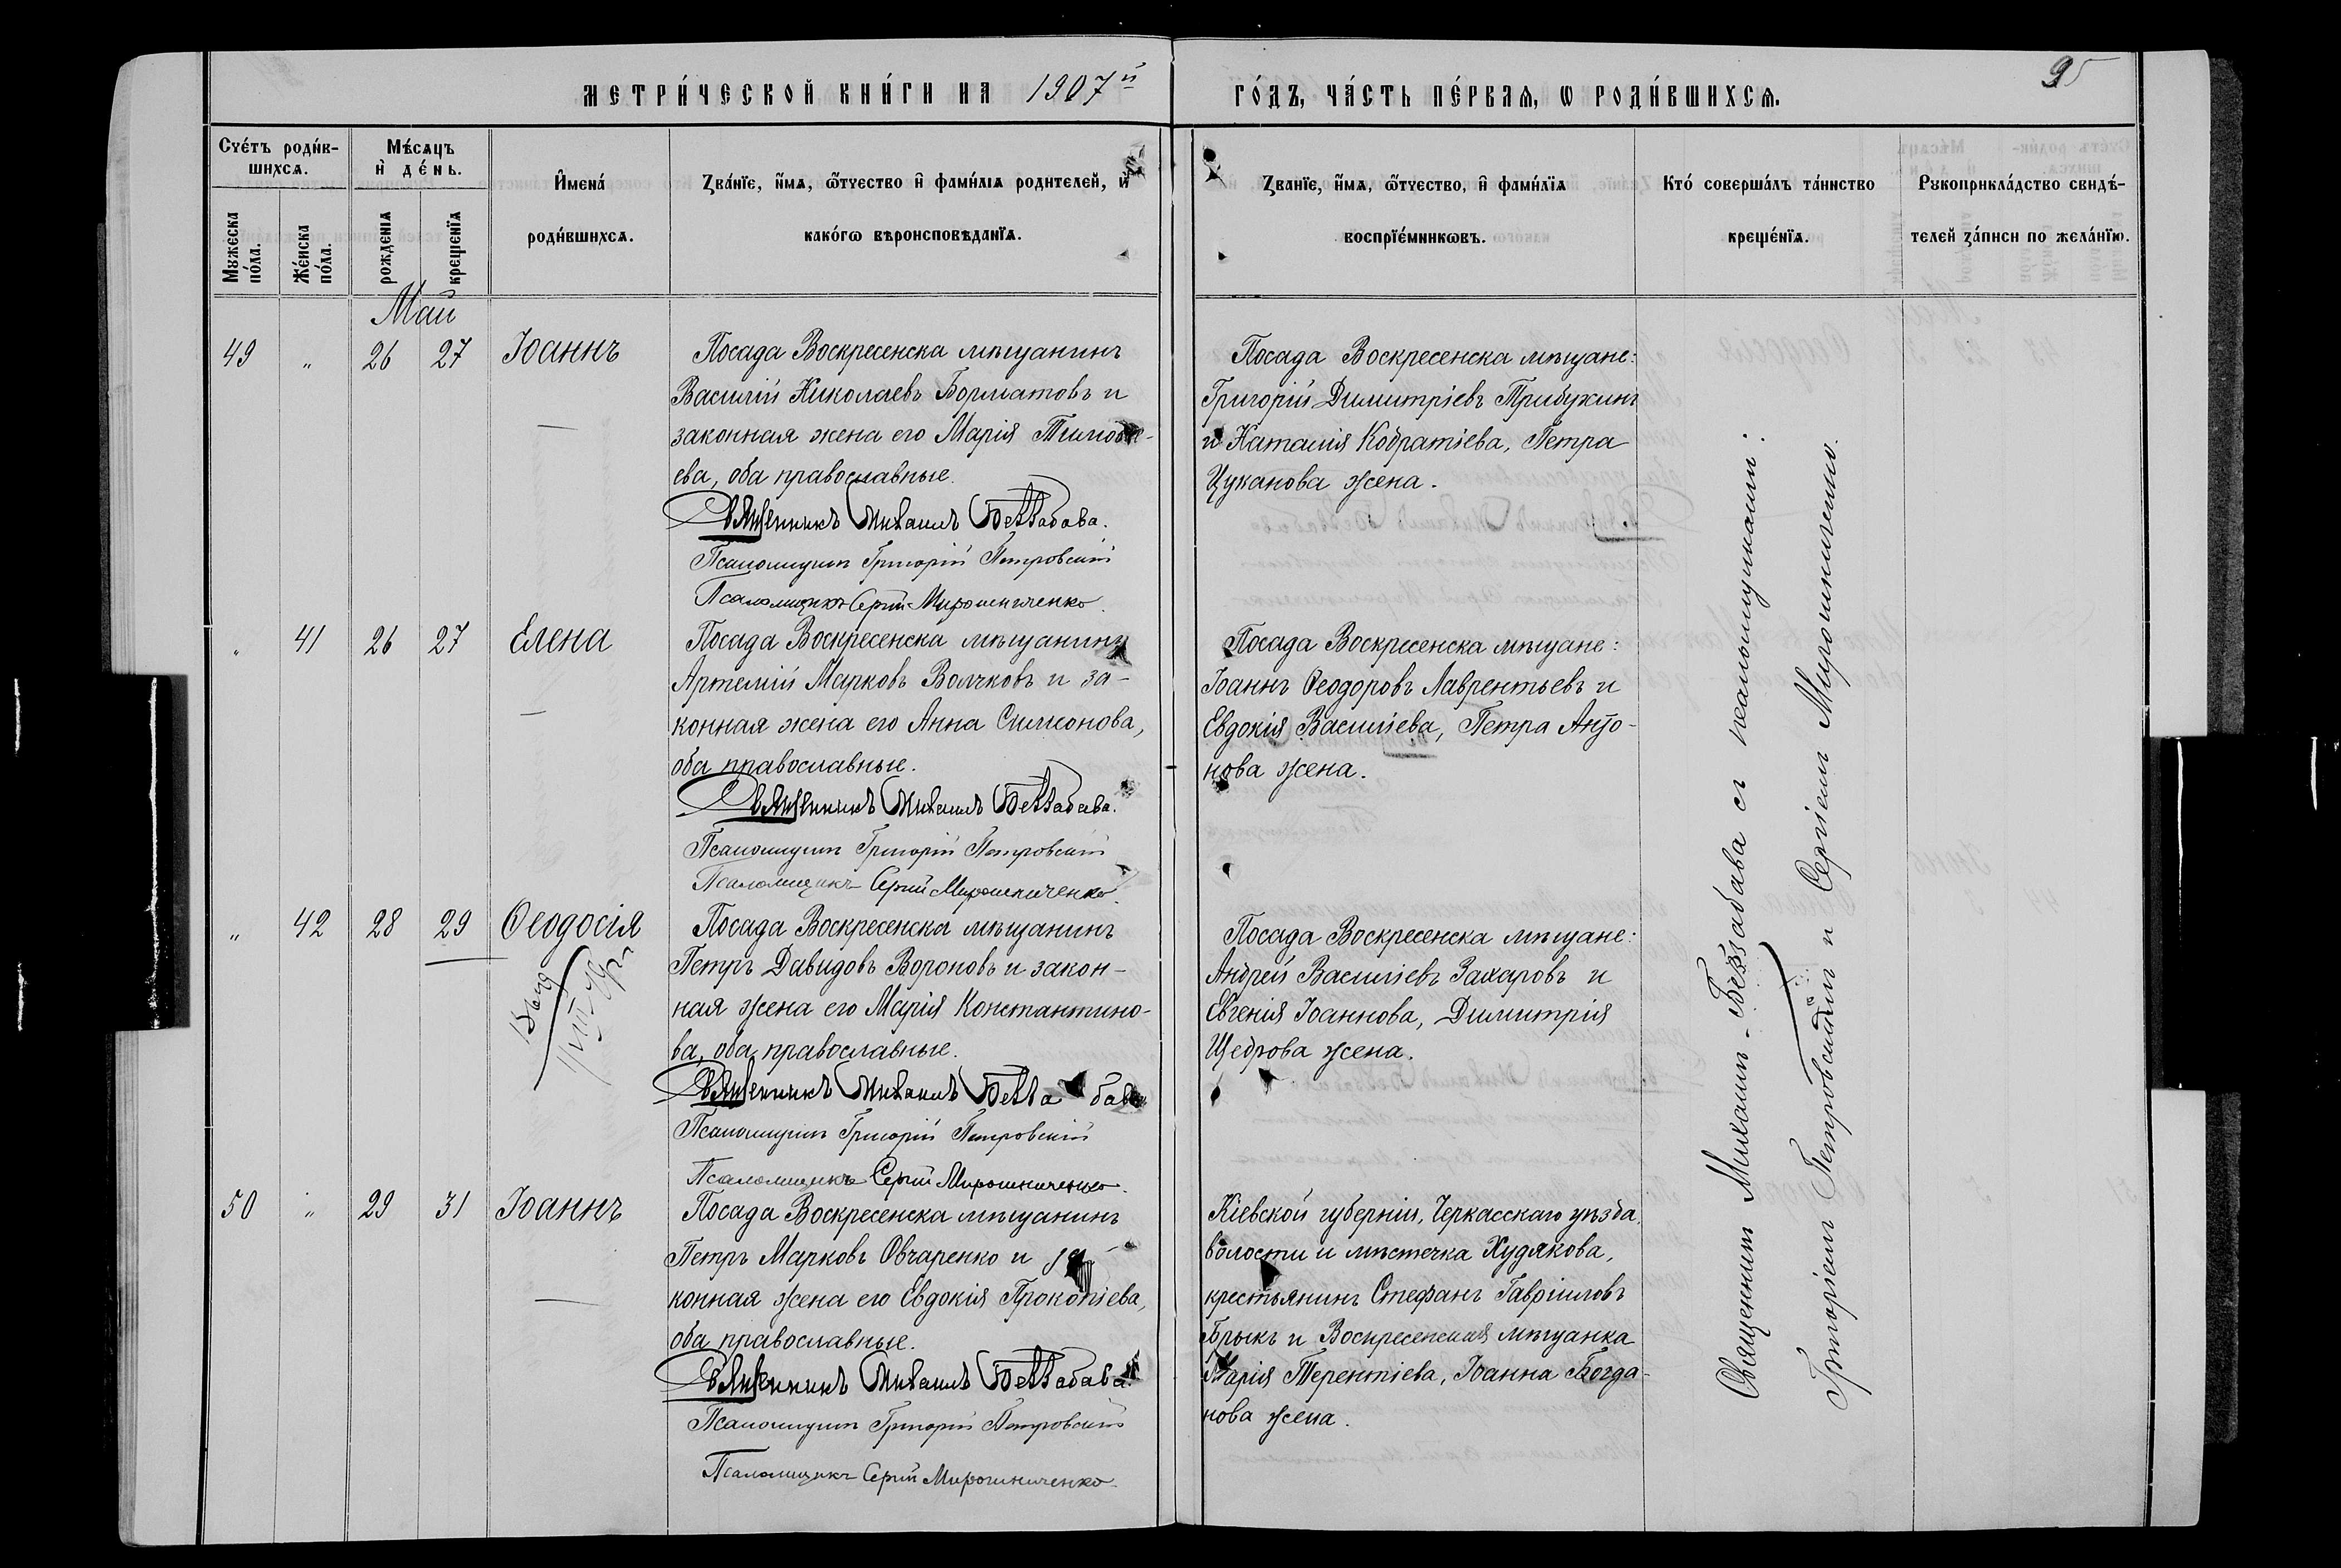 МЕТРИ́ЧЕСКОЙ КНИ́ГИ НА 1907й
ГО́ДЪ, ЧА́СТЬ ПЕ́РВАѦ, Ѡ РОДИ́ВШИХСѦ.
95
Сче́тъ роди́вшихсѧ.
Мꙋжеска по́ла.
Же́нска по́ла.
Мѣ́сѧцъ и҆ де́нь.
рожденїѧ
крещенїѧ
И҆мена́ роди́вшихсѧ.
Зва́нїе, и҆́мѧ, ѻ҆́тчество и҆ фамі́лїѧ родителей, и҆
како́гѡ вѣроисповѣданїѧ.
Званїе, и҆́мѧ, ѻ҆́тчество, и҆ фами́лїѧ
воспрїе́мникѡвъ.
Кто́ соверша́лъ та́инство
креще́нїѧ.
Рꙋкоприкла́дство свидѣ́-
телей за́писи по жела́нїю.
Май
49 " 26 27 Іоаннъ
Посада Воскресенска мѣщанинъ
Василій Николаевъ Борматовъ и
законная жена его Марія
ева, оба православные.
Священникъ Михаилъ Беззабава.
Псаломщикъ Григорій Петровскій
Псаломщикъ Сергій Мирошниченко.
Посада Воскресенска мѣщане:
Григорій Димитріевъ Трибужинъ
и Наталія Кодратіева, Петра
Цуканова жена.
" 41 26 27 Елена
Посада Воскресенска мѣщанинъ
Артемій Марковъ Волчковъ и за-
конная жена его Анна Симеонова,
оба православные.
Священникъ Михаилъ Беззабава.
Псаломщикъ Григорій Петровскій
Псаломщикъ Сергій Мирошниченко.
Посада Воскресенска мѣщане:
Іоаннъ Ѳеодоровъ Лаврентьевъ и
Евдокія Василіева, Петра Анто-
нова жена.
" 42 28 29 Ѳеодосія
Посада Воскресенска мѣщанинъ
Петръ Давидовъ Вороновъ и закон-
ная жена его Марія Константино-
ва, оба православные.
Священникъ Михаилъ Беззабава
Псаломщикъ Григорій Петровскій
Псаломщикъ Сергій Мирошниченко.
Посада Воскресенска мѣщане:
Андрей Василіевъ Захаровъ и
Евгенія Іоаннова, Димитрія
Щедрова жена.
50 " 29 31 Іоаннъ
Посада Воскресенска мѣщанинъ
Петръ Марковъ Овчаренко и за-
конная жена его Евдокія Прокопіева,
оба православные.
Священникъ Михаилъ Беззабава.
Псаломщикъ Григорій Петровскій
Псаломщикъ Сергій Мирошниченко.
Кіевской губерніи, Черкасскаго уѣзда,
волости и мѣстечка Худякова,
крестьянинъ Стефанъ Гавріиловъ
Брыкъ и Воскресенская мѣщанка
Марія Терентіева, Іоанна Богда-
нова жена.
Священникъ Михаилъ Беззабава съ псаломщиками:
Григоріемъ Петровскимъ и Сергіемъ Мирошниченко.